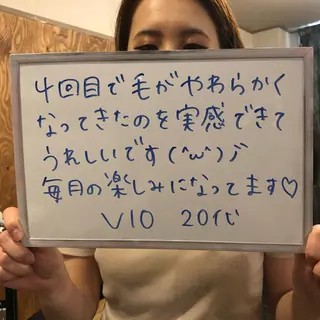 4回目で毛がやわらかく
なってきたのを実感できて
うれしいです(^ω^)ノ
毎月の楽しみになってます♡
VIO 20代